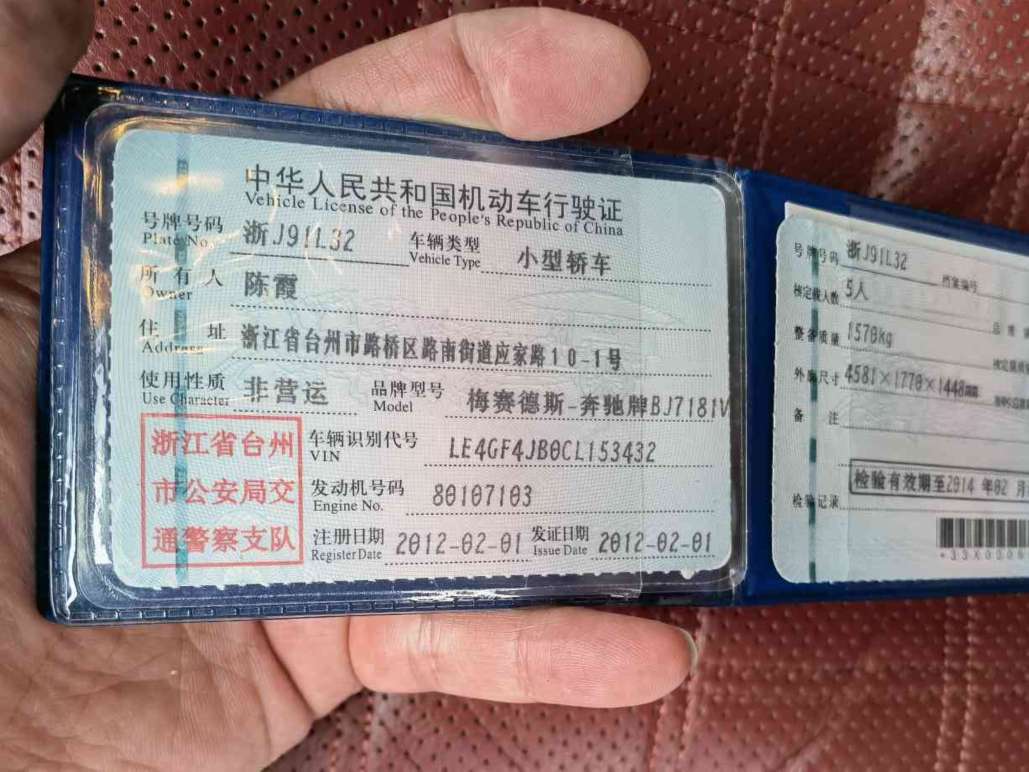 中华人民共和国机动车行驶证
Vehicle License of the People's Republic of China
号牌号码 浙J91L32 车辆类型 小型轿车
Plate No. Vehicle Type
所有人 陈霞
Owner
住址 浙江省台州市路桥区路南街道应家路10-1号
Address
使用性质 非营运 品牌型号 梅赛德斯-奔驰牌BJ7181V
Use Character Model
浙江省台州
市公安局交
通警察支队
车辆识别代号 LE4GF4JB0CL153432
VIN
发动机号码 80107103
Engine No.
注册日期 2012-02-01 发证日期 2012-02-01
Register Date Issue Date
号牌号码 浙J91L32 档案编号
核定载人数 5人
整备质量 1570kg
外廓尺寸 4581×1770×1448mm
备注
检验有效期至2014年02月
检验记录